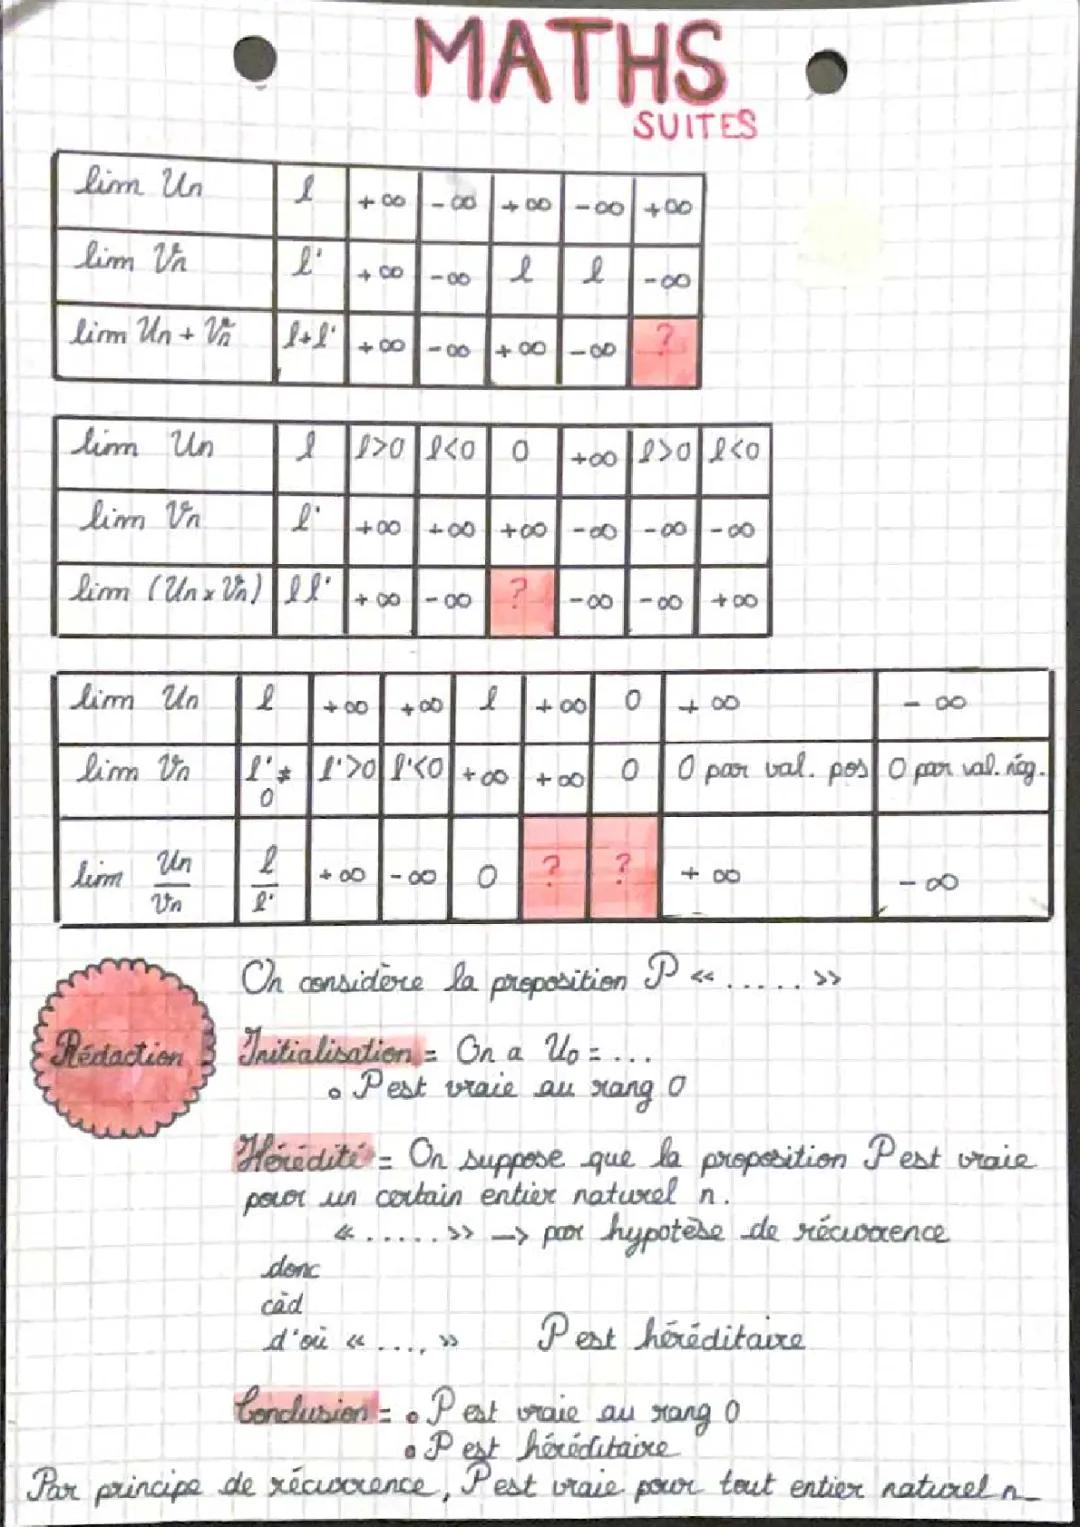 MATHS
SUITES
lim Un | l | +∞ | -∞ | +∞ | -∞ | +∞
lim Vn | l' | +∞ | -∞ | l | l | -∞
lim Un + Vn | l+l' | +∞ | -∞ | +∞ | -∞ | ?
lim Un | l | l>0 | l<0 | 0 | +∞ | l>0 | l<0
lim Vn | l' | +∞ | +∞ | +∞ | -∞ | -∞ | -∞
lim (Un x Vn) | ll' | +∞ | -∞ | ? | -∞ | -∞ | +∞
lim Un | l | +∞ | +∞ | l | +∞ | 0 | +∞ | -∞
lim Vn | l'≠0 | l'>0 | l'<0 | +∞ | +∞ | 0 | 0 par val. pos | 0 par val. nég.
lim Un/Vn | l/l' | +∞ | -∞ | 0 | ? | ? | +∞ | -∞
Rédaction
On considère la proposition P «......»
Initialisation = On a U0 = ...
• P est vraie au rang 0
Hérédité = On suppose que la proposition P est vraie
pour un certain entier naturel n.
«.....» → par hypotèse de récurrence
donc
càd
d'où «....,» P est héréditaire
Conclusion = • P est vraie au rang 0
• P est héréditaire
Par principe de récurrence, P est vraie pour tout entier naturel n_